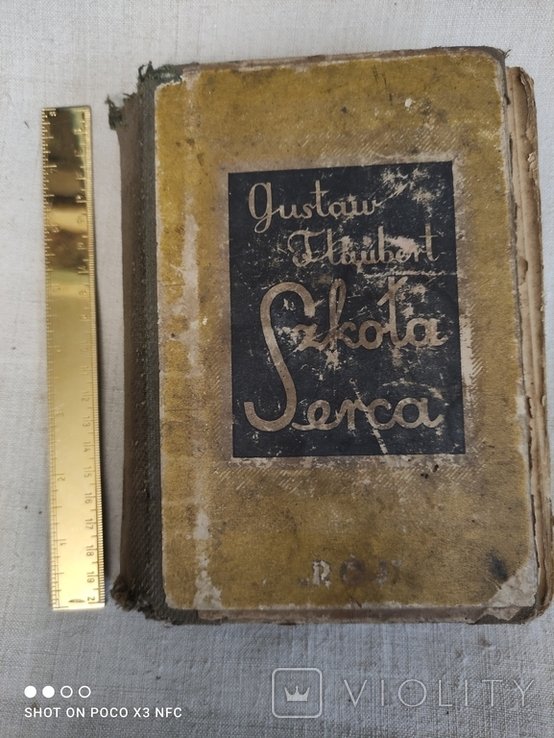 Gustaw
Flaubert
Szkoła
Serca
SHOT ON POCO X3 NFC
VIOLITY